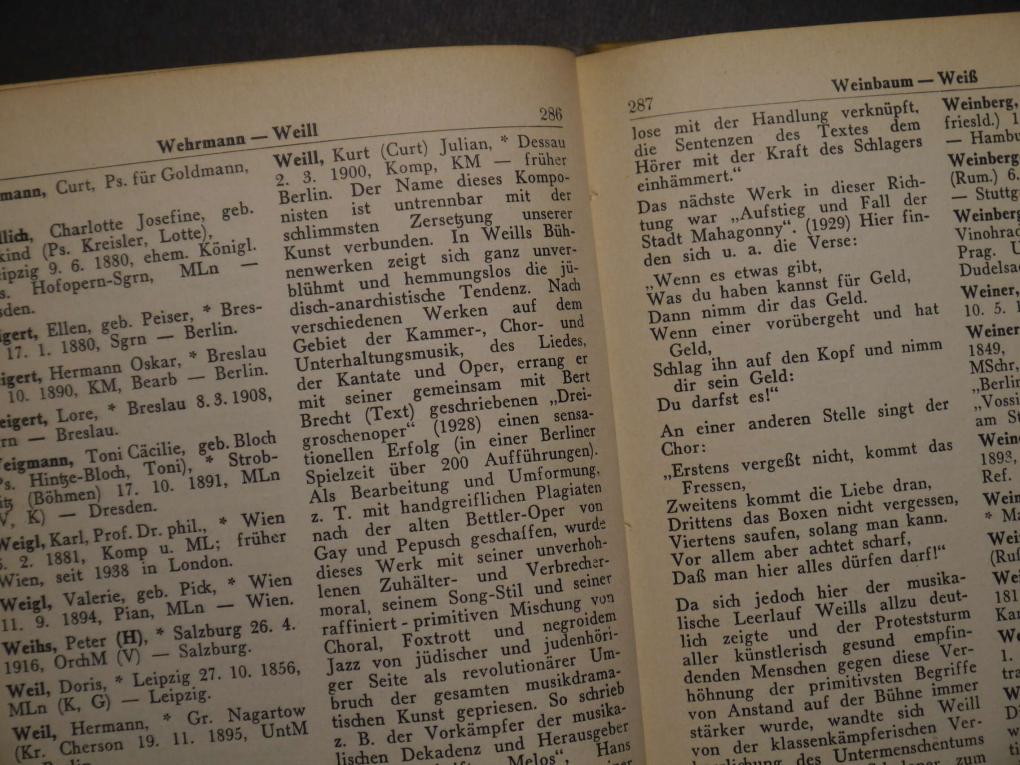 Wehrmann — Weill
286
mann, Curt, Ps. für Goldmann,
llich, Charlotte Josefine, geb.
kind (Ps. Kreisler, Lotte),
ipzig 9. 6. 1880, ehem. Königl.
s. Hofopern-Sgrn, MLn —
sden.
igert, Ellen, geb. Peiser, * Bres-
17. 1. 1880, Sgrn — Berlin.
igert, Hermann Oskar, * Breslau
10. 1890, KM, Bearb — Berlin.
eigert, Lore, * Breslau 8. 3. 1908,
rn — Breslau.
eigmann, Toni Cäcilie, geb. Bloch
Ps. Hintze-Bloch, Toni), * Strob-
itz (Böhmen) 17. 10. 1891, MLn
V, K) — Dresden.
Weigl, Karl, Prof. Dr. phil., * Wien
6. 2. 1881, Komp u. ML; früher
Wien, seit 1938 in London.
Weigl, Valerie, geb. Pick, * Wien
11. 9. 1894, Pian, MLn — Wien.
Weihs, Peter (H), * Salzburg 26. 4.
1916, OrchM (V) — Salzburg.
Weil, Doris, * Leipzig 27. 10. 1856,
MLn (K, G) — Leipzig.
Weil, Hermann, * Gr. Nagartow
(Kr. Cherson 19. 11. 1895, UntM
Weill, Kurt (Curt) Julian, * Dessau
2. 3. 1900, Komp, KM — früher
Berlin. Der Name dieses Kompo-
nisten ist untrennbar mit der
schlimmsten Zersetzung unserer
Kunst verbunden. In Weills Büh-
nenwerken zeigt sich ganz unver-
blühmt und hemmungslos die jü-
disch-anarchistische Tendenz. Nach
verschiedenen Werken auf dem
Gebiet der Kammer-, Chor- und
Unterhaltungsmusik, des Liedes,
der Kantate und Oper, errang er
mit seiner gemeinsam mit Bert
Brecht (Text) geschriebenen „Drei-
groschenoper“ (1928) einen sensa-
tionellen Erfolg (in einer Berliner
Spielzeit über 200 Aufführungen).
Als Bearbeitung und Umformung,
z. T. mit handgreiflichen Plagiaten
nach der alten Bettler-Oper von
Gay und Pepusch geschaffen, wurde
dieses Werk mit seiner unverhoh-
lenen Zuhälter- und Verbrecher-
moral, seinem Song-Stil und seiner
raffiniert-primitiven Mischung von
Choral, Foxtrott und negroidem
Jazz von jüdischer und judenhöri-
ger Seite als revolutionärer Um-
bruch der gesamten musikdrama-
tischen Kunst gepriesen. So schrieb
z. B. der Vorkämpfer der musika-
lischen Dekadenz und Herausgeber
Melos“, Hans
287
Weinbaum — Weiß
lose mit der Handlung verknüpft,
die Sentenzen des Textes dem
Hörer mit der Kraft des Schlagers
einhämmert.“
Das nächste Werk in dieser Rich-
tung war „Aufstieg und Fall der
Stadt Mahagonny“. (1929) Hier fin-
den sich u. a. die Verse:
„Wenn es etwas gibt,
Was du haben kannst für Geld,
Dann nimm dir das Geld.
Wenn einer vorübergeht und hat
Geld,
Schlag ihn auf den Kopf und nimm
dir sein Geld:
Du darfst es!“
An einer anderen Stelle singt der
Chor:
„Erstens vergeßt nicht, kommt das
Fressen,
Zweitens kommt die Liebe dran,
Drittens das Boxen nicht vergessen,
Viertens saufen, solang man kann.
Vor allem aber achtet scharf,
Daß man hier alles dürfen darf!“
Da sich jedoch hier der musika-
lische Leerlauf Weills allzu deut-
lich zeigte und der Proteststurm
aller künstlerisch gesund empfin-
denden Menschen gegen diese Ver-
höhnung der primitivsten Begriffe
von Anstand auf der Bühne immer
stärker wurde, wandte sich Weill
von der klassenkämpferischen Ver-
herrlichung des Untermenschentums
zum
Weinberg,
friesld.) 1
— Hambu
Weinberg
(Rum.) 6.
— Stuttg
Weinberg
Vinohrad
Prag. U
Dudelsa
Weiner,
10. 5. 1
Weiner
1849,
MSchr,
„Berlin
„Vossi
am St
Weine
1893,
Ref.
Wein
* Ma
Wei
(Ruf
We
181
Kar
We
1.
tra
W
Di